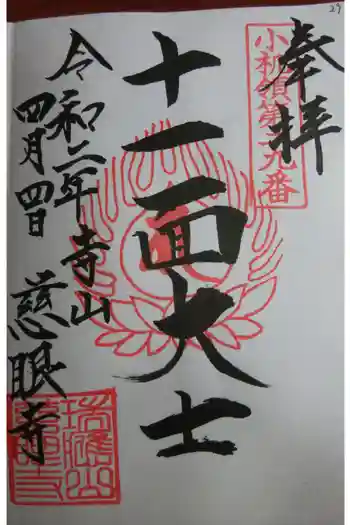 29
奉拝
小机領第二九番
十一面大士
令和二年
四月四日
寺山
慈眼寺